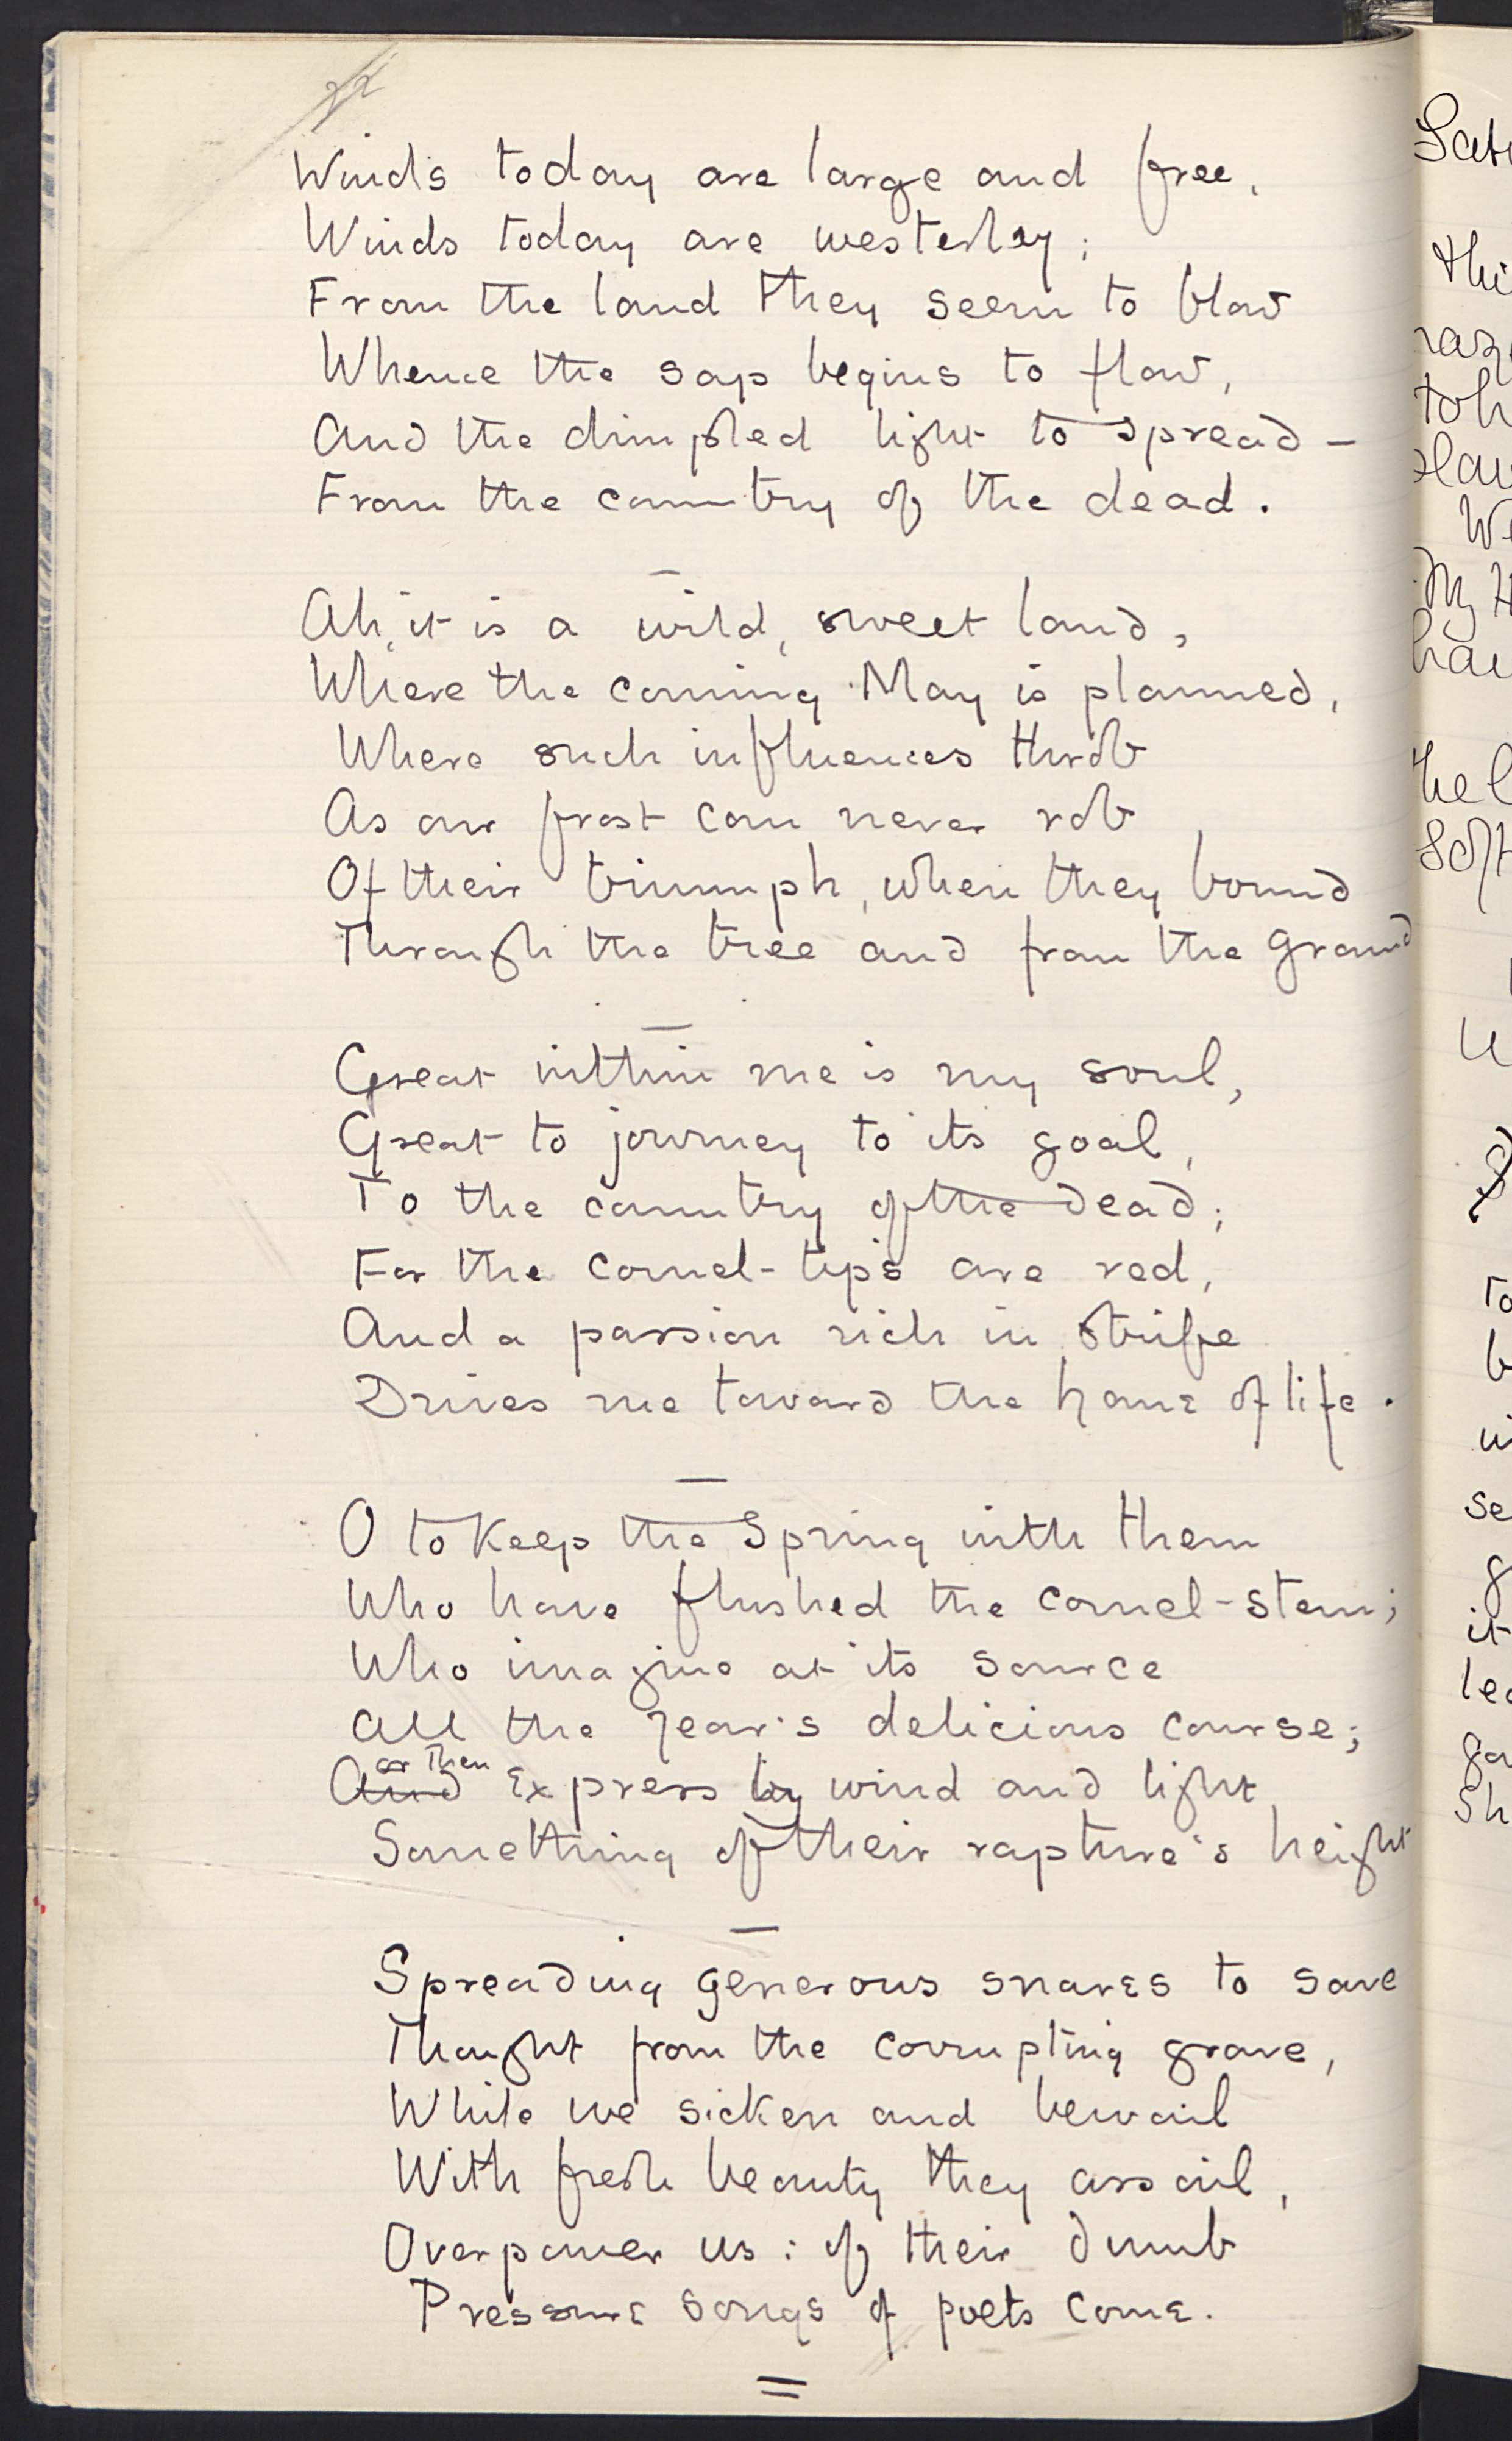 Winds today are large and free,
Winds today are westerley;
From the land they seem to blow
Whence the sap begins to flow,
And the dimpled light to spread —
From the country of the dead.
Ah, it is a wild, sweet land,
Where the coming May is planned,
Where such influences throb
As our frost can never rob
Of their triumph, when they bound
Through the tree and from the ground
Great within me is my soul,
Great to journey to its goal,
To the country of the dead;
For the cornel-tips are red,
And a passion rich in strife
Drives me toward the home of life.
O to keep the Spring with them
Who have flushed the cornel-stem;
Who imagine at its source
All the year's delicious course;
or Then
And Express by wind and light
Something of their rapture's height
Spreading generous snares to save
Thought from the corrupting grave,
While we sicken and bewail
With fresh beauty they assail,
Overpower us: of their dumb
Pressure songs of poets come.